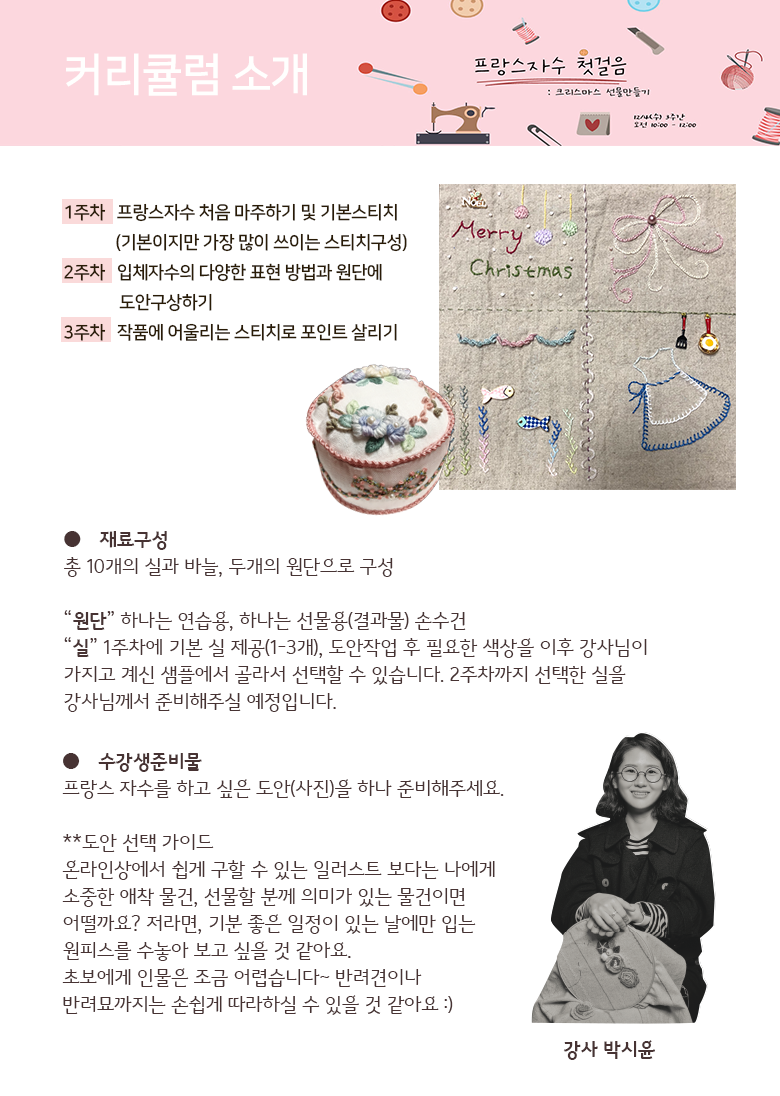 커리큘럼 소개
프랑스자수 첫걸음
: 크리스마스 선물만들기
12/4(수) 3주간
오전 10:00 - 12:00
1주차 프랑스자수 처음 마주하기 및 기본스티치
(기본이지만 가장 많이 쓰이는 스티치구성)
2주차 입체자수의 다양한 표현 방법과 원단에
도안구상하기
3주차 작품에 어울리는 스티치로 포인트 살리기
NOEL
Merry
Christmas
● 재료구성
총 10개의 실과 바늘, 두개의 원단으로 구성
“원단” 하나는 연습용, 하나는 선물용(결과물) 손수건
“실” 1주차에 기본 실 제공(1-3개), 도안작업 후 필요한 색상을 이후 강사님이
가지고 계신 샘플에서 골라서 선택할 수 있습니다. 2주차까지 선택한 실을
강사님께서 준비해주실 예정입니다.
● 수강생준비물
프랑스 자수를 하고 싶은 도안(사진)을 하나 준비해주세요.
**도안 선택 가이드
온라인상에서 쉽게 구할 수 있는 일러스트 보다는 나에게
소중한 애착 물건, 선물할 분께 의미가 있는 물건이면
어떨까요? 저라면, 기분 좋은 일정이 있는 날에만 입는
원피스를 수놓아 보고 싶을 것 같아요.
초보에게 인물은 조금 어렵습니다~ 반려견이나
반려묘까지는 손쉽게 따라하실 수 있을 것 같아요 :)
강사 박시윤